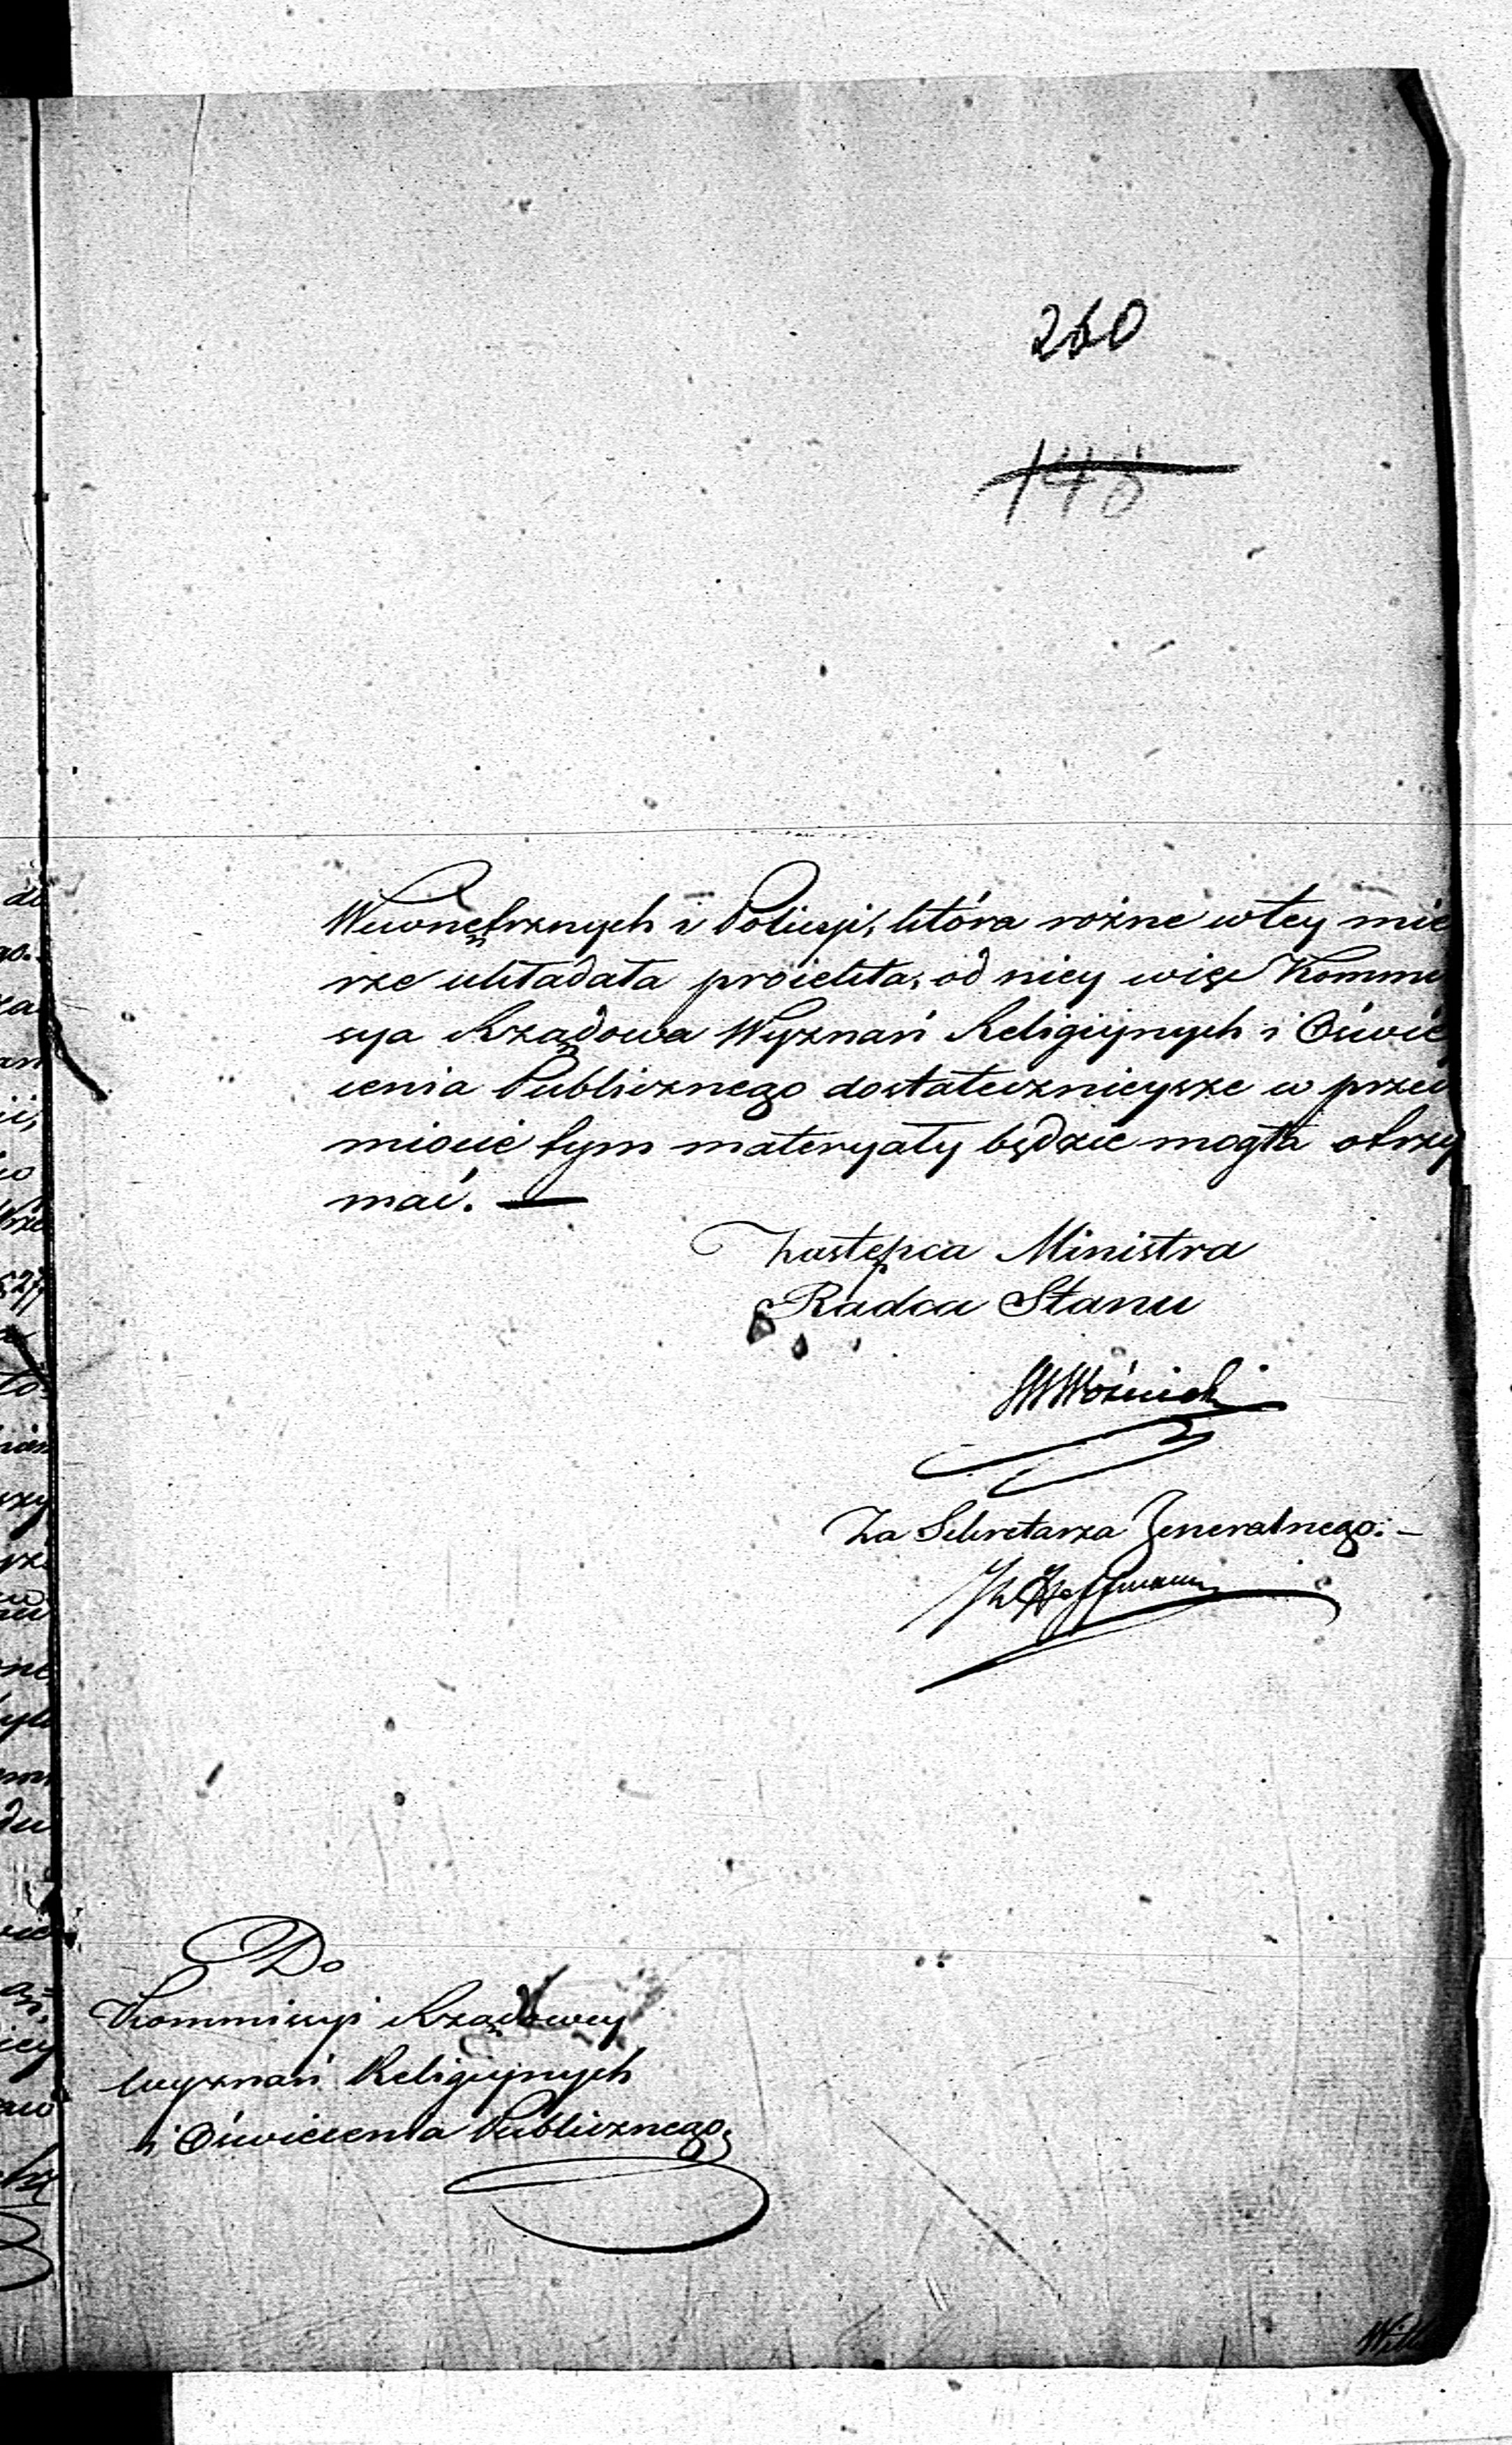 260
148
Wewnętrznych i Policyi, która rożne w tey mie
rze układała proiekta, od niey więc Kommi
sya Rządowa Wyznań Religijnych i Oświe
cenia Publicznego dostatecznieysze w przed
miocie tym materyały będzie mogła otrzy
mać. —
Zastępca Ministra
Radca Stanu
Woźnicki
Za Sekretarza Jeneralnego: –
Hoffmann
Do
Kommissyi Rządowey
Wyznań Religijnych
i Oświecenia Publicznego.